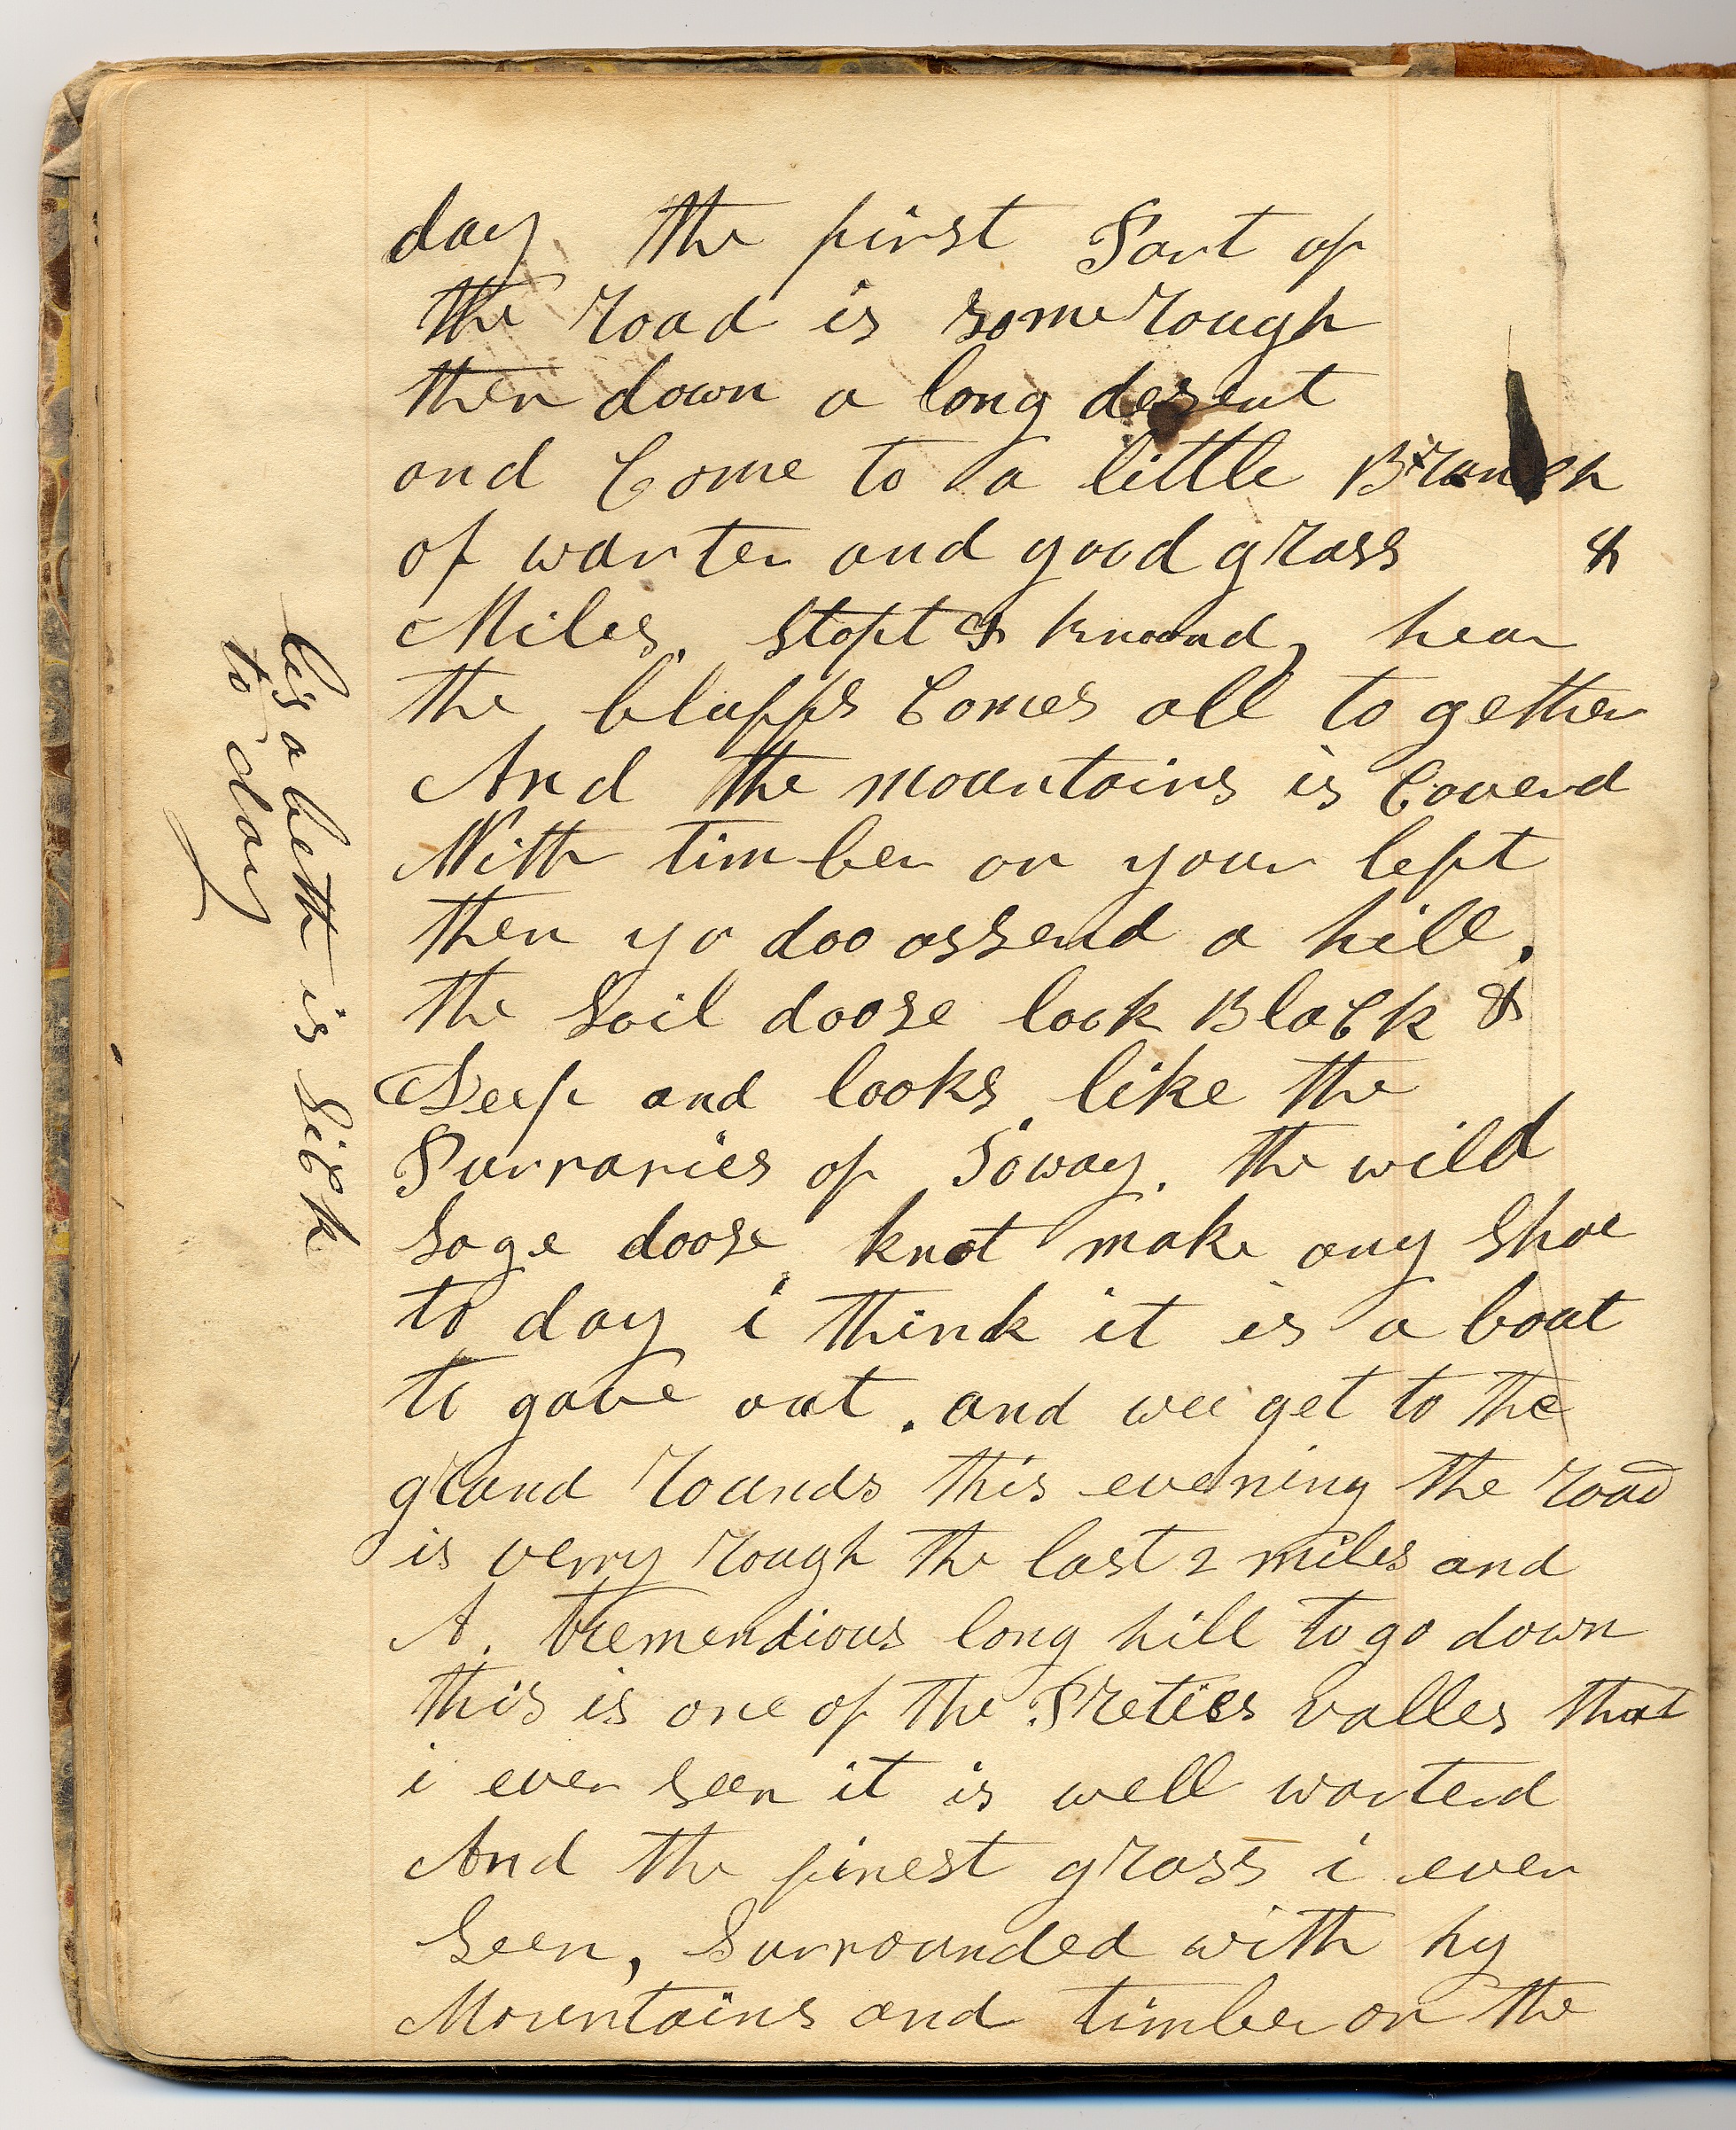 day the first Part of
the road is some rough
then down a long desent
and Come to a little Branch
of warter and good grass 8
Miles. Stopt & knoond, hear
the bluffs Comes all to gether
And the mountains is Coverd
With timber on your left
then yo doo assend a hill.
the Soil doose look Black &
Deep and looks like the
Purraries of ioway. the wild
Sage doose knot make any Shoe
to day i think it is a bout
to gave out. and wee get to the
grand rounds this evening the road
is verry rough the last 2 miles and
A. tremendious long hill to go down
this is one of the Preties valles that
i ever Seen it is well warterd
And the finest grass i ever
Seen, Surrounded with hy
Mountains and timber on the
lisabeth is Sick
to day